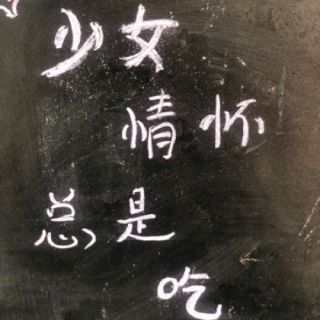 少女
情怀
总是
吃